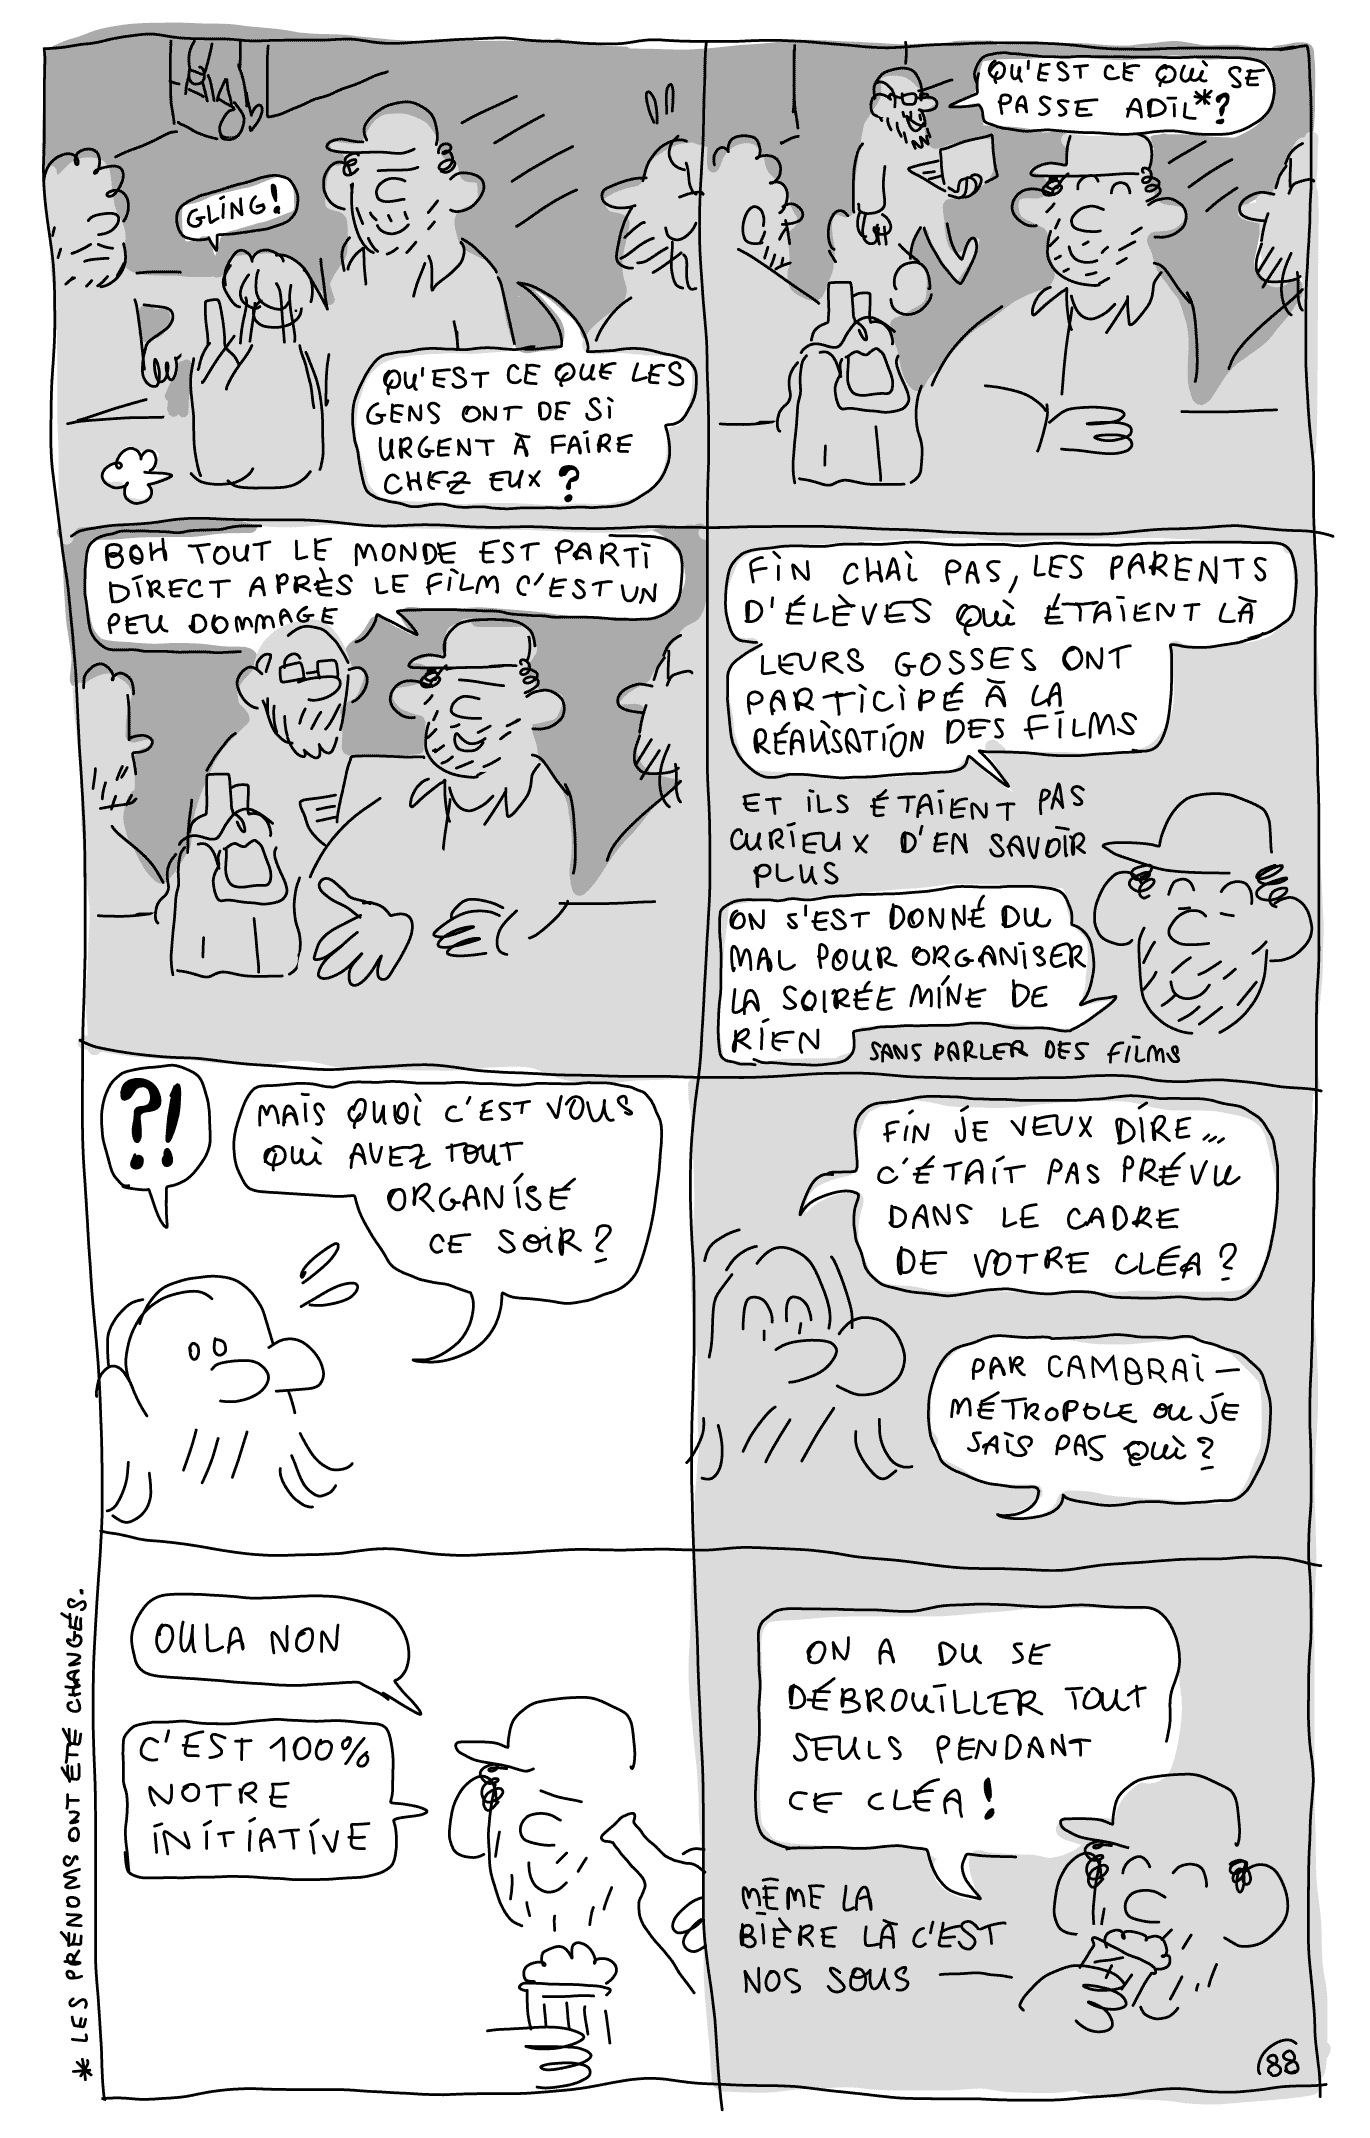 GLING!
QU'EST CE QUE LES
GENS ONT DE SI
URGENT À FAIRE
CHEZ EUX ?
QU'EST CE QUI SE
PASSE ADIL*?
BOH TOUT LE MONDE EST PARTI
DIRECT APRÈS LE FILM C'EST UN
PEU DOMMAGE
FIN CHAI PAS, LES PARENTS
D'ÉLÈVES QUI ÉTAIENT LÀ
LEURS GOSSES ONT
PARTICIPÉ À LA
RÉALISATION DES FILMS
ET ILS ÉTAIENT PAS
CURIEUX D'EN SAVOIR
PLUS
ON S'EST DONNÉ DU
MAL POUR ORGANISER
LA SOIRÉE MINE DE
RIEN
SANS PARLER DES FILMS
?!
MAIS QUOI C'EST VOUS
QUI AVEZ TOUT
ORGANISÉ
CE SOIR ?
FIN JE VEUX DIRE...
C'ÉTAIT PAS PRÉVU
DANS LE CADRE
DE VOTRE CLÉA ?
PAR CAMBRAI-
MÉTROPOLE OU JE
SAIS PAS QUI ?
OULA NON
C'EST 100%
NOTRE
INITIATIVE
ON A DU SE
DÉBROUILLER TOUT
SEULS PENDANT
CE CLÉA !
MÊME LA
BIÈRE LÀ C'EST
NOS SOUS
* LES PRÉNOMS ONT ÉTÉ CHANGÉS.
88